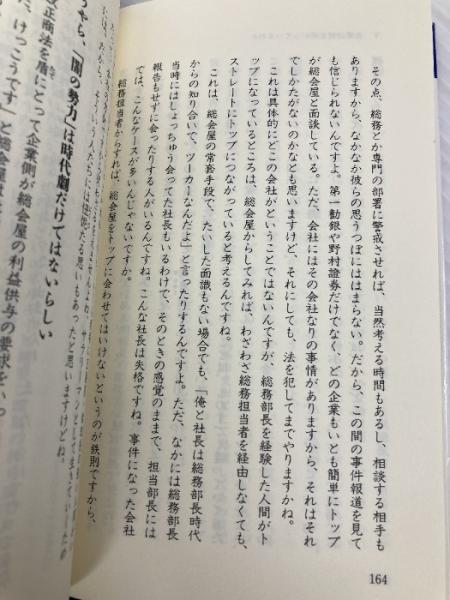 その点、総務とか専門の部署に警戒させれば、当然考える時間もあるし、相談する相手も
ありますから、なかなか彼らの思うつぼにはまらない。だから、この間の事件報道を見て
も信じられないんですよ。第一勧銀や野村證券だけでなく、どの企業もいとも簡単にトップ
が総会屋と面談している。ただ、会社にはその会社なりの事情がありますから、それはそれ
でしかたがないのかなとも思いますけど、それにしても、法を犯してまでやりますかね。
これは具体的にどこの会社がということではないんですが、総務部長を経験した人間がト
ップになっているところは、総会屋からしてみれば、わざわざ総務担当者を経由しなくても、
ストレートにトップにつながっていると考えるんですね。
これは、総会屋の常套手段で、たいした面識もない場合でも、「俺と社長は総務部長時代
からの知り合いで、ツーカーなんだよ」と言ったりするんですよ。ただ、なかには総務部長
当時にはしょっちゅう会ってた社長もいるわけで、そのときの感覚のままで、担当部長には
報告もせずに会ったりする人がいるんですね。こんな社長は失格ですね。事件になった会社
では、こんなケースが多いんじゃないですか。
総務担当者からすれば、総会屋をトップに会わせてはいけないというのが鉄則ですから、
思いもあったと思いますけどね。
「闇の勢力」は時代劇だけではないらしい
改正商法を盾にとって企業側が総会屋の利益供与の要求を
けっこうです」と総会屋
164